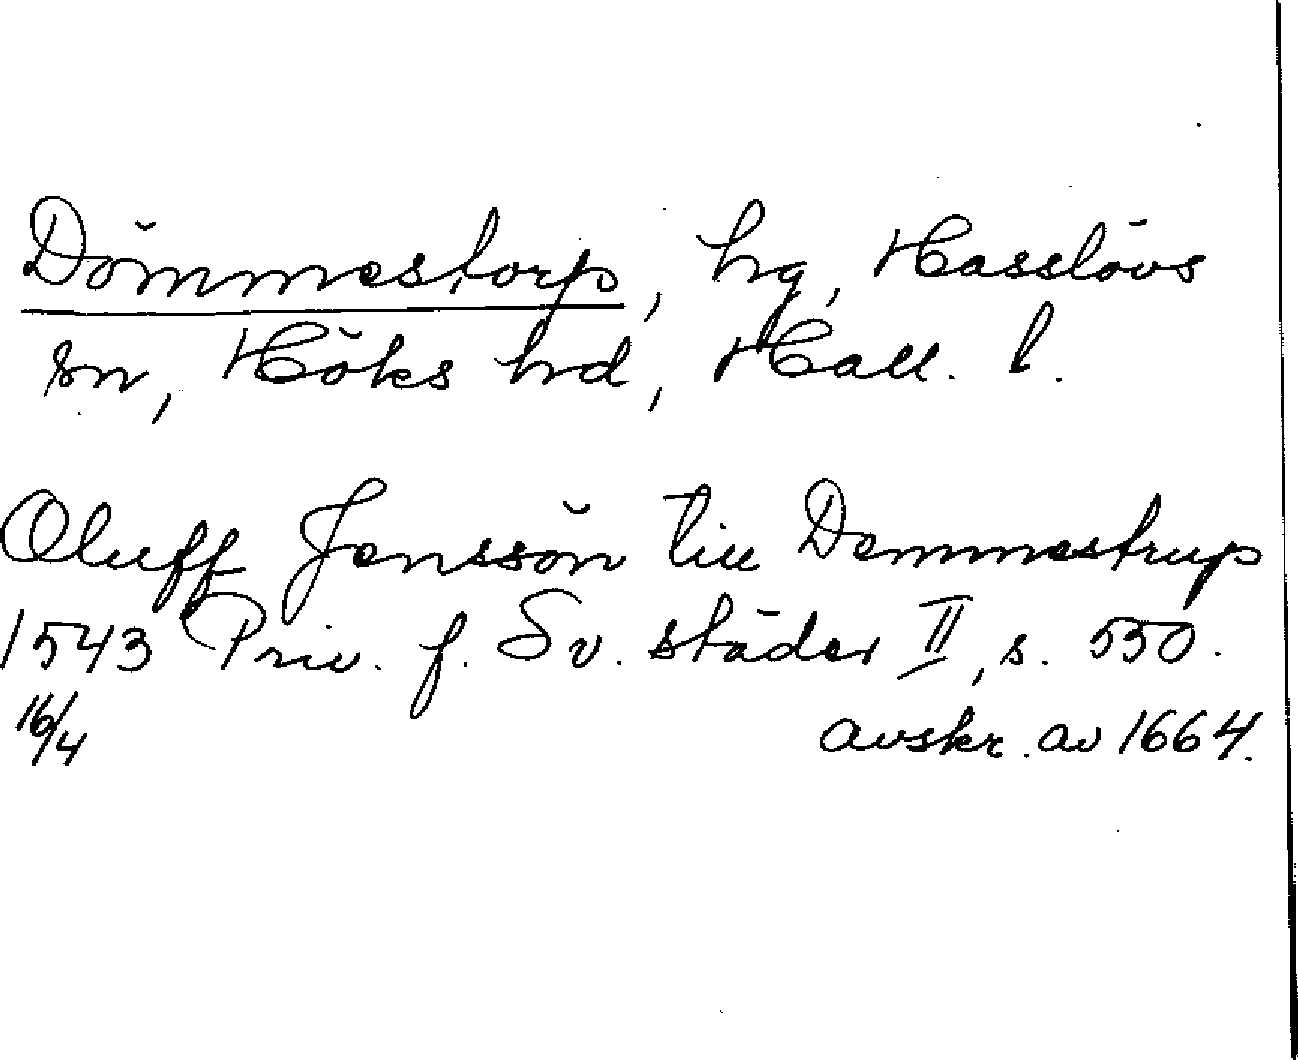 Dömmestorp, hg, Hasslövs
sn, Höks hrd, Hall. l.
Oluff Jensson till Demmestrup
1543 Priv. f. Sv. städer II, s. 550.
16/4 avskr. av 1664.